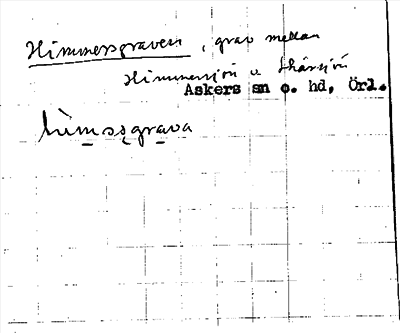 Himmersgraven, grav mellan
Himmersjön o Skärsjön
Askers sn o. hd, Örl.
himssgrava